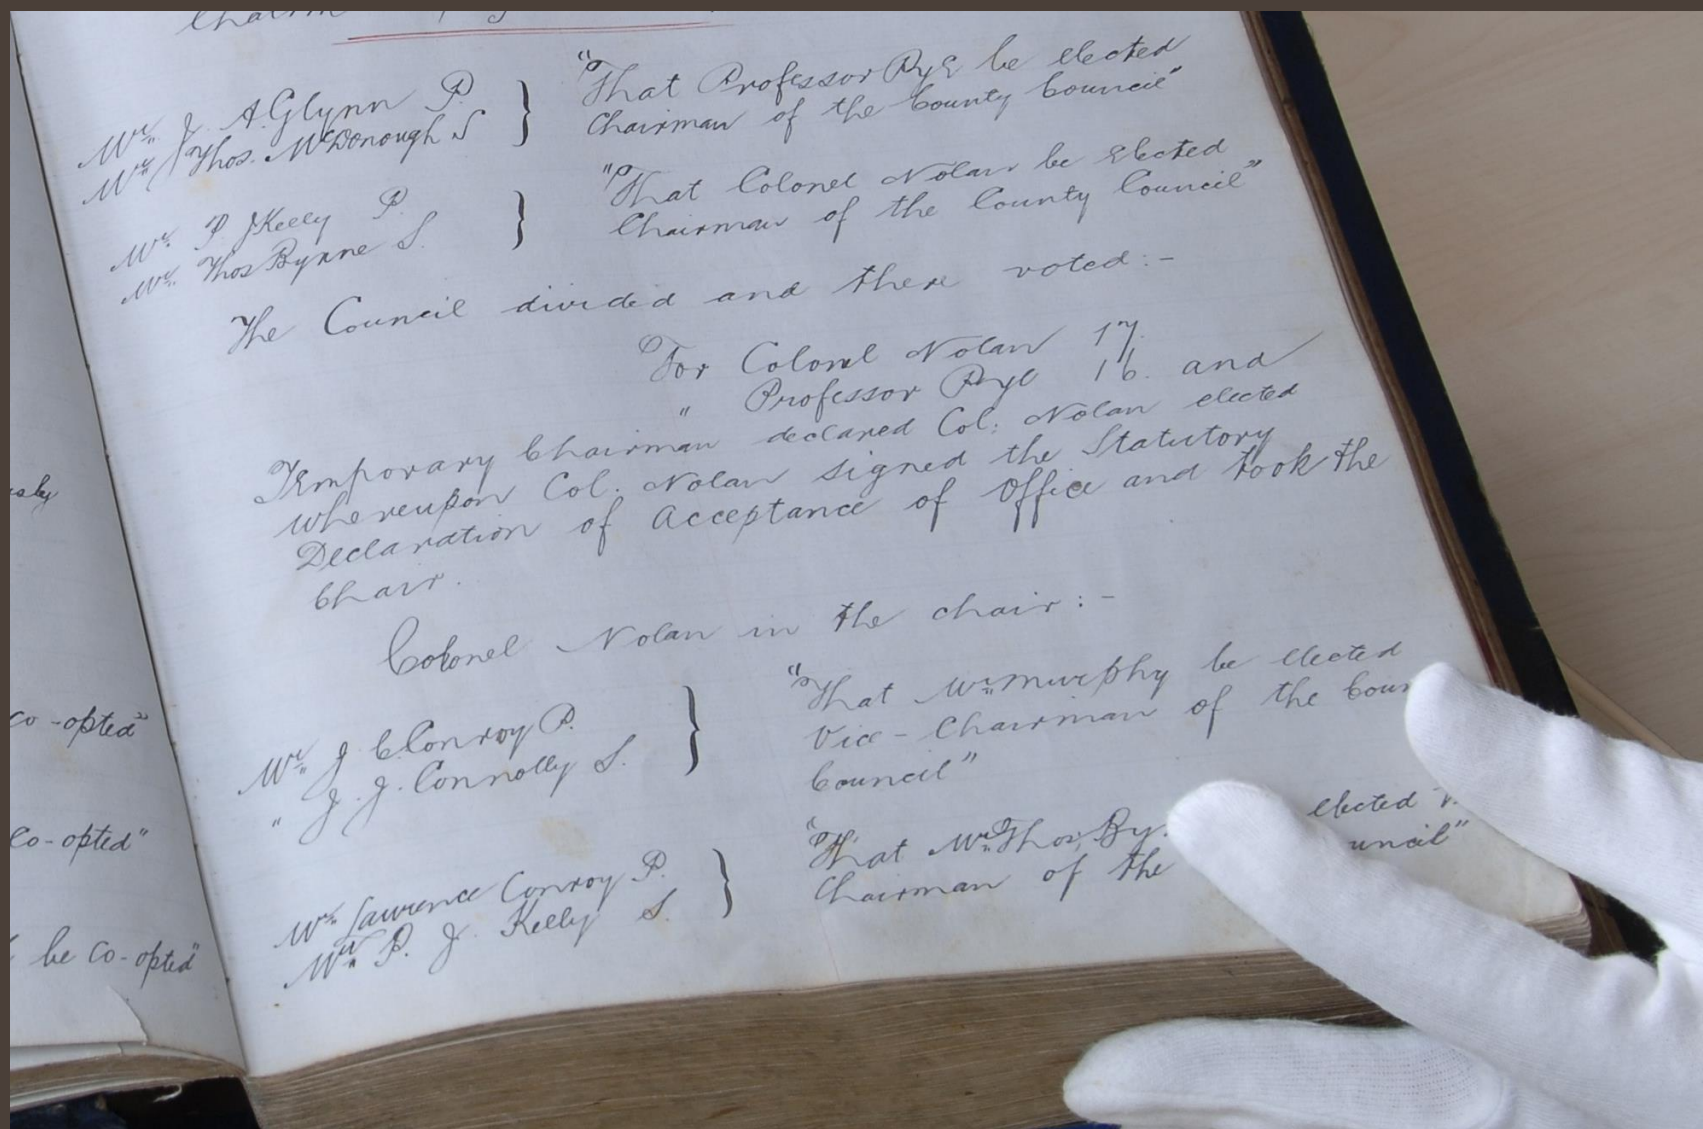 asby
co-opted"
co-opted"
be co-opted"
Mr. J. A. Glynn P.
Mr. Thos. McDonough S
}
"That Professor Rye be elected
Chairman of the County Council"
Mr. P. J Kelly P.
Mr. Thos Byrne S.
}
"That Colonel Nolan be Elected
Chairman of the County Council"
The Council divided and there voted:-
For Colonel Nolan 17.
" Professor Rye 16. and
Temporary Chairman declared Col: Nolan elected
whereupon Col: Nolan signed the Statutory
Declaration of Acceptance of Office and took the
Chair.
Colonel Nolan in the chair:-
Mr. J C Conroy P.
" J. J. Connolly S.
}
"That Mr. Murphy be elected
Vice-Chairman of the Coun
Council"
Mr. Lawrence Conroy P.
Mr. P. J. Kelly S.
}
"That Mr. Thos. By elected
Chairman of the uncil"